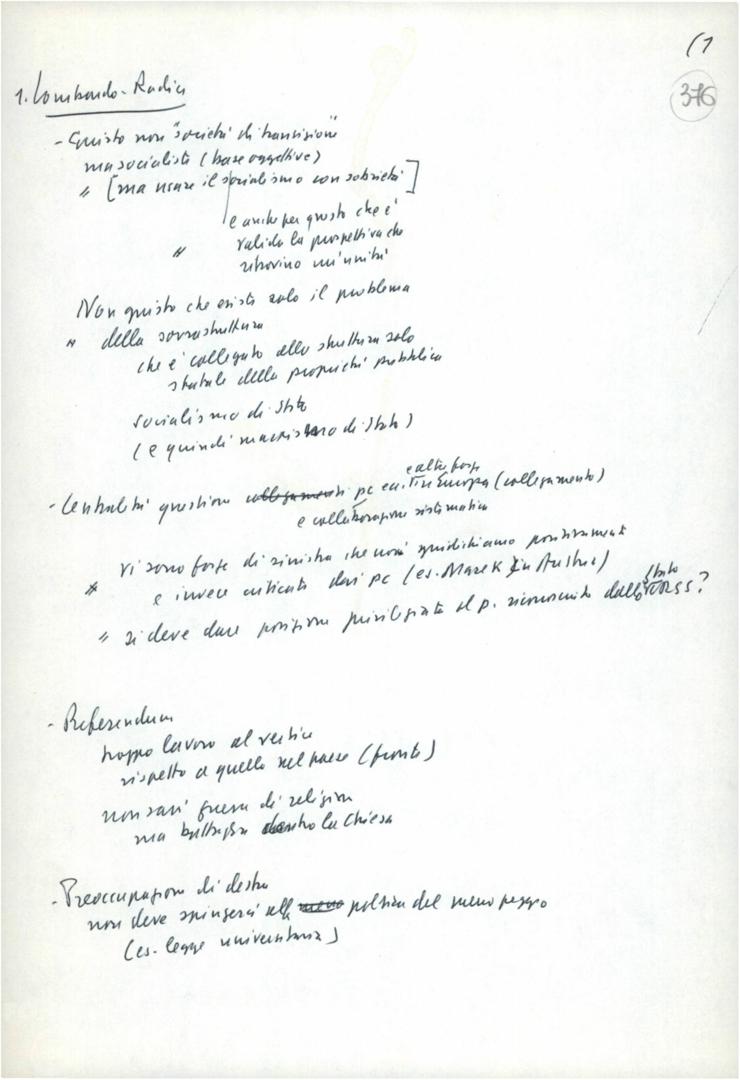 (1
376
1. Lombardo-Radice
- Giusto non "società di transizione"
ma socialiste (base oggettiva)
" [ma usare il socialismo con sobrietà]
e anche per questo che è
" valida la prospettiva che
ritrovino un'unità
Non giusto che esista solo il problema
" della sovrastruttura
che è collegato alla struttura solo
statale della proprietà pubblica
socialismo di Stato
(e quindi marxismo di Stato)
- Centralità questione pc
e altre forze
in Europa (collegamento)
e collaborazione sistematica
" vi sono forze di sinistra che noi giudichiamo positivamente
e invece criticate dai pc (es. Marek in Austria)
" si deve dare posizione privilegiata al p. riconosciuto dallo Stato URSS?
- Referendum
troppo lavoro al vertice
rispetto a quello nel paese (fronte)
non sarà guerra di religione
ma battaglia dentro la Chiesa
- Preoccupazione di destra
non deve spingerci alla politica del meno peggio
(es. legge universitaria)